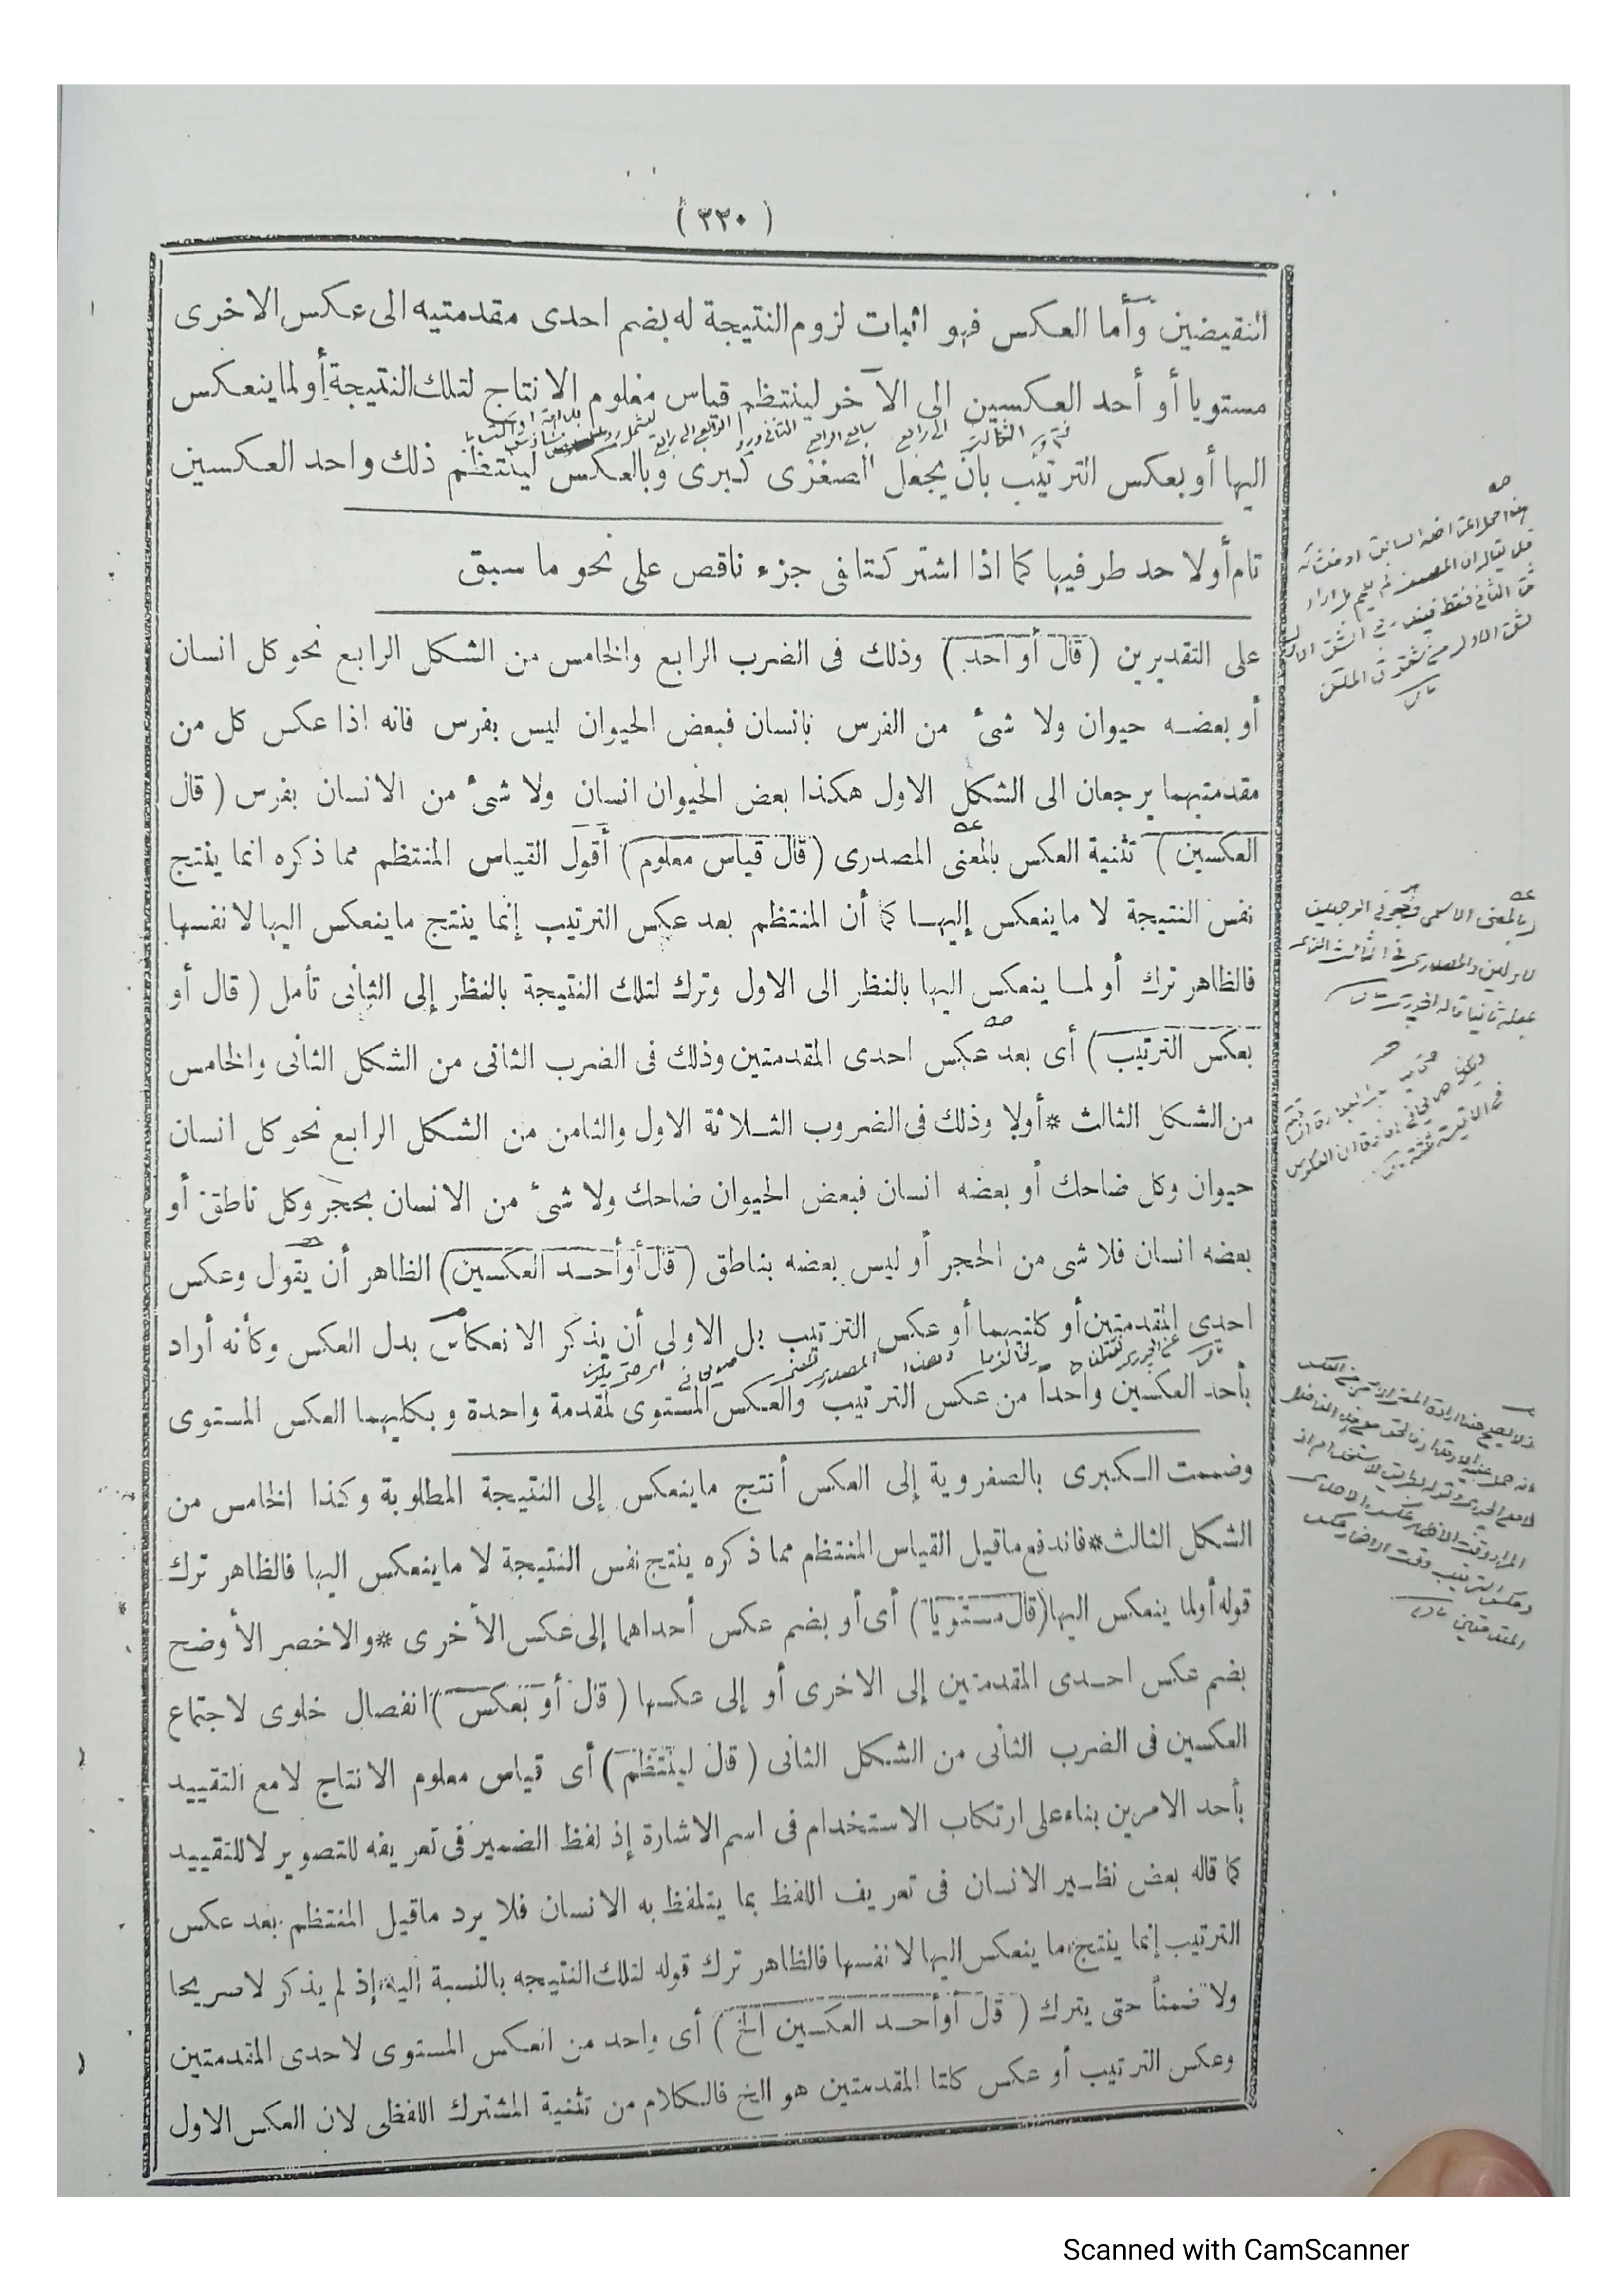 ( ٣٣٠ )
النقيضين وأما العكس فهو اثبات لزوم النتيجة له بضم احدى مقدمتيه الى عكس الاخرى
مستويا أو أحد العكسين الى الآخر لينتظم قياس معلوم الانتاج لتلك النتيجة أو لما ينعكس
اليها أو بعكس الترتيب بان يجعل الصغرى كبرى وبالعكس لينتظم ذلك واحد العكسين
تام أو لاحد طرفيها كما اذا اشتركتا فى جزء ناقص على نحو ما سبق
على التقديرين ( قال أو احد ) وذلك فى الضرب الرابع والخامس من الشكل الرابع نحو كل انسان
أو بعضه حيوان ولا شئ من الفرس بانسان فبعض الحيوان ليس بفرس فانه اذا عكس كل من
مقدمتيهما يرجعان الى الشكل الاول هكذا بعض الحيوان انسان ولا شئ من الانسان بفرس ( قال
العكسين ) تثنية العكس بالمعنى المصدرى ( قال قياس معلوم ) أقول القياس المنتظم مما ذكره انما ينتج
نفس النتيجة لا ما ينعكس إليهـا كما أن المنتظم بعد عكس الترتيب إنما ينتج ما ينعكس اليها لا نفسها
فالظاهر ترك أو لما ينعكس اليها بالنظر الى الاول وترك لتلك النتيجة بالنظر إلى الثانى تأمل ( قال أو
بعكس الترتيب ) أى بعد عكس احدى المقدمتين وذلك فى الضرب الثانى من الشكل الثانى والخامس
من الشكل الثالث * أولا وذلك فى الضروب الثـلاثة الاول والثامن من الشكل الرابع نحو كل انسان
حيوان وكل ضاحك أو بعضه انسان فبعض الحيوان ضاحك ولا شئ من الانسان بحجر وكل ناطق أو
بعضه انسان فلا شى من الحجر أو ليس بعضه بناطق ( قال أو أحـد العكسين ) الظاهر أن يقول وعكس
احدى المقدمتين أو كلتيهما أو عكس الترتيب بل الاولى أن يذكر الانعكاس بدل العكس وكأنه أراد
بأحد العكسين واحداً من عكس الترتيب والعكس المستوى لمقدمة واحدة وبكليهما العكس المستوى
وضممت الكبرى بالصغروية إلى العكس أنتج ما ينعكس إلى النتيجة المطلوبة وكذا الخامس من
الشكل الثالث * فاندفع ما قيل القياس المنتظم مما ذكره ينتج نفس النتيجة لا ما ينعكس اليها فالظاهر ترك
قوله أو لما ينعكس اليها ( قال مستويا ) أى أو بضم عكس أحداهما إلى عكس الأخرى * والاخصر الأوضح
بضم عكس احـدى المقدمتين إلى الاخرى أو إلى عكسها ( قال أو بعكس ) انفصال خلوى لاجتماع
العكسين فى الضرب الثانى من الشكل الثانى ( قال لينتظم ) أى قياس معلوم الانتاج لا مع التقييد
بأحد الامرين بناء على ارتكاب الاستخدام فى اسم الاشارة إذ لفظ الضمير فى تعريفه للتصوير لا للتقييد
كما قاله بعض نظـير الانسان فى تعريف اللفظ بما يتلفظ به الانسان فلا يرد ما قيل المنتظم بعد عكس
الترتيب إنما ينتج ما ينعكس اليها لا نفسها فالظاهر ترك قوله لتلك النتيجه بالنسبة اليه إذ لم يذكر لا صريحا
ولا ضمناً حتى يترك ( قال أو أحـد العكسين الخ ) أى واحد من العكس المستوى لاحدى المقدمتين
وعكس الترتيب أو عكس كلتا المقدمتين هو الخ فالكلام من تثنية المشترك اللفظى لان العكس الاول
Scanned with CamScanner